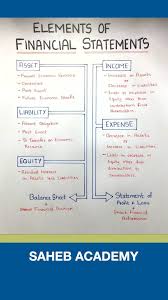 ELEMENTS OF
FINANCIAL STATEMENTS
ASSET
Present Economic Resource
Controlled
Past Event
Future Economic Benefit
LIABILITY
Present Obligation
Past Event
To Transfer an Economic
Resource
EQUITY
Residual Interest
in Assets less Liabilities
Balance Sheet
Shows Financial Position
INCOME
Increase in Assets
or Decrease in
Liabilities
Leads to increase in
Equity other than
contribution from
Shareholders
EXPENSE
Decrease in Assets or
Increase in Liabilities
Leads to decrease in
Equity other than
distribution to
Shareholders
Statement of
Profit & Loss
Shows Financial
Performance
SAHEB ACADEMY